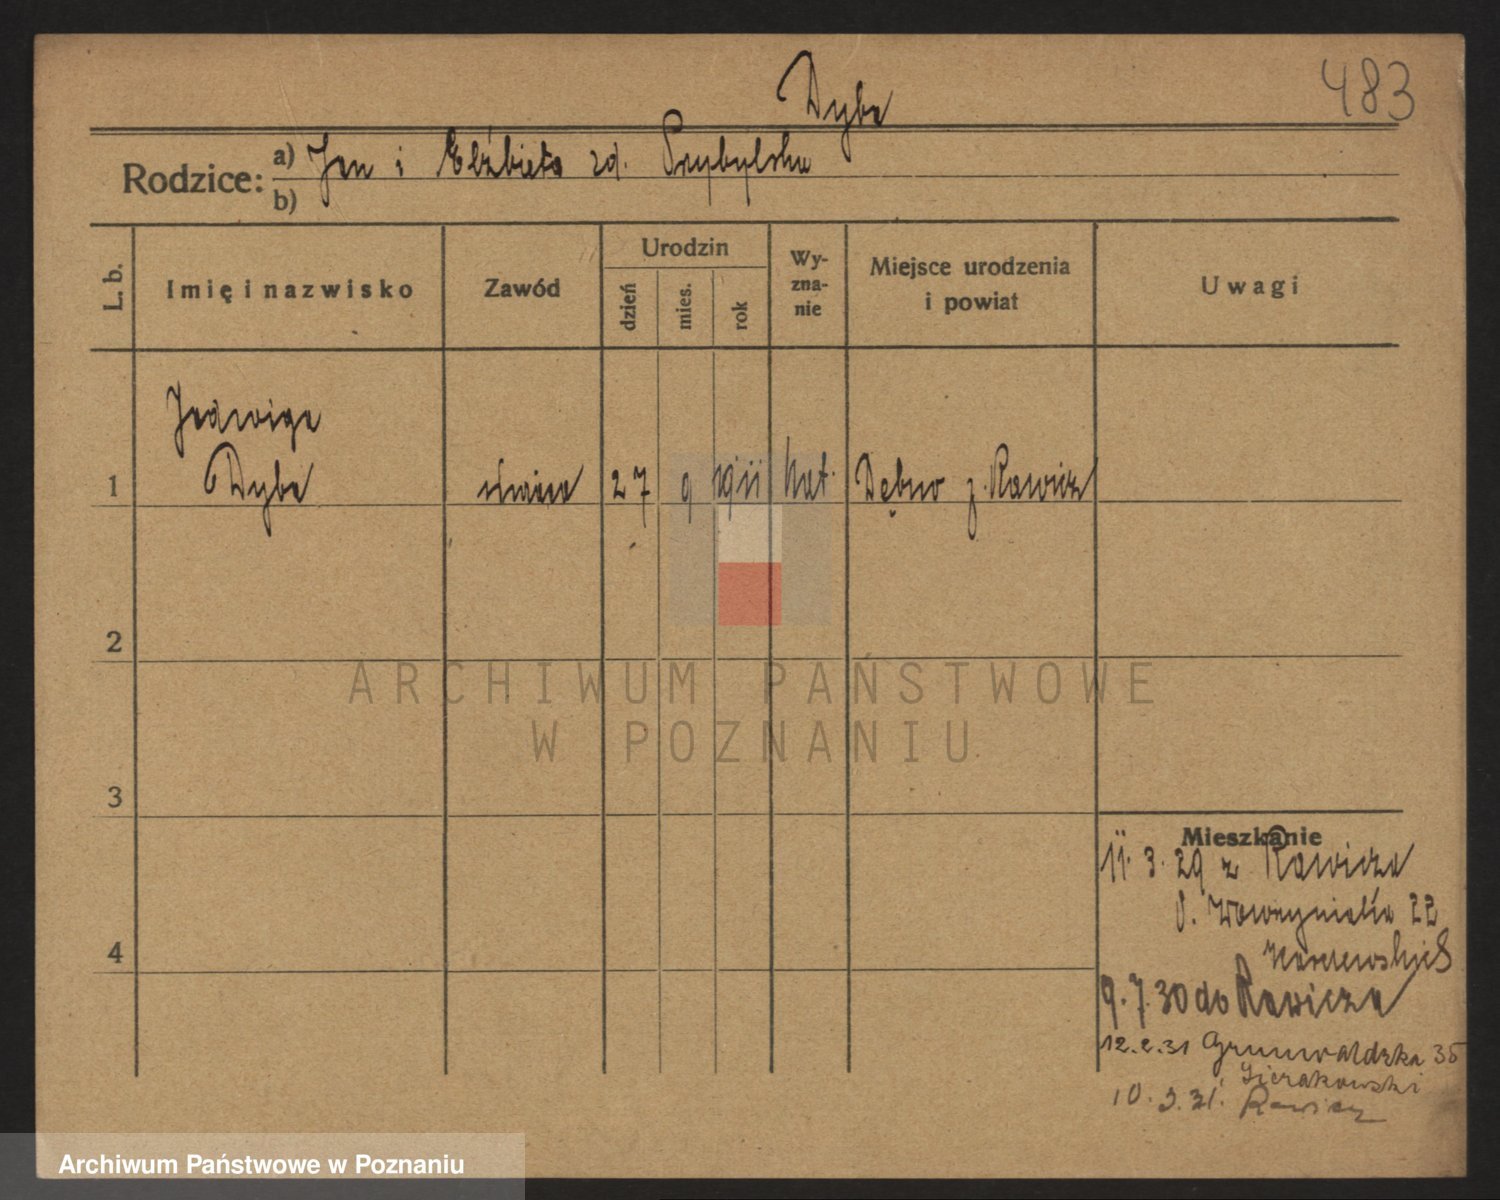 483
Dyba
Rodzice: a) Jan i Elżbieta zd. Przybylska
b)
L. b.
Imię i nazwisko
Zawód
Urodzin
dzień
mies.
rok
Wy-
zna-
nie
Miejsce urodzenia
i powiat
Uwagi
Jadwiga
1 Dyba 27 9 1911 kat. Dębno z. Rawicz
2
3
4
Mieszkanie
11. 3. 29 z Rawicza
22
9. 7. 30 do Rawicza
12. 2. 31 Grunwaldzka 35
Sierakowski
10. 3. 31. Rawicz
ARCHIWUM PAŃSTWOWE
W POZNANIU
Archiwum Państwowe w Poznaniu